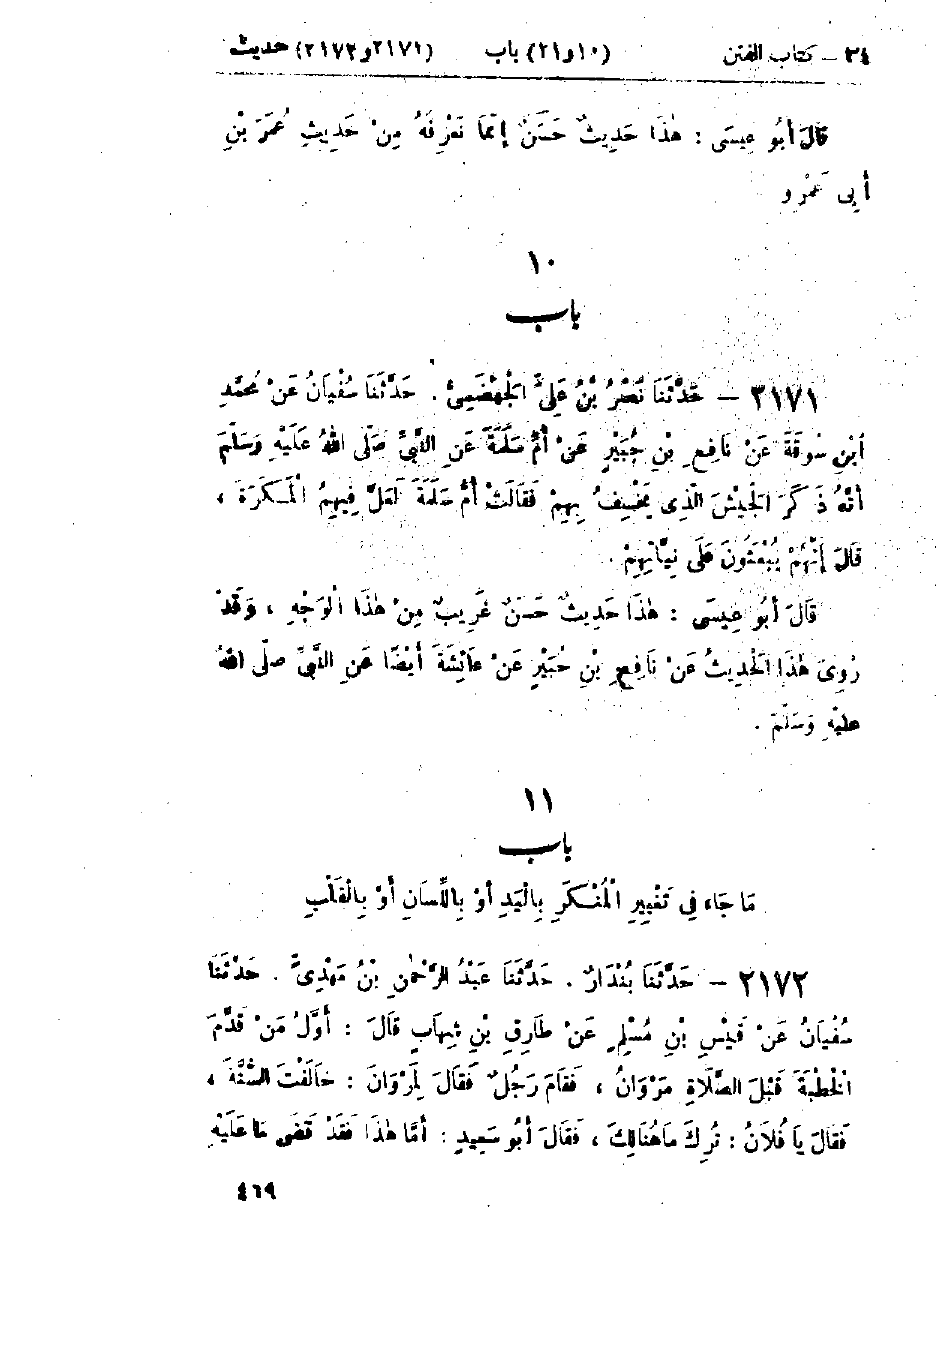 ٣٤ – كتاب الفتن (١٠و٢١) باب (٢١٧١و٢١٧٢) حديث
قَالَ أَبُو عِيسَى : هٰذَا حَدِيثٌ حَسَنٌ إِنَّمَا نَعْرِفُهُ مِنْ حَدِيثِ عُمَرَ بْنِ
أَبِى عَمْرٍو
١٠
باب
٢١٧١ – حَدَّثَنَا نَصْرُ بْنُ عَلِىٍّ الْجَهْضَمِىُّ . حَدَّثَنَا سُفْيَانُ عَنْ مُحَمَّدِ
ابْنِ سُوقَةَ عَنْ نَافِعِ بْنِ جُبَيْرٍ عَنْ أُمِّ سَلَمَةَ عَنِ النَّبِىِّ صَلَّى اللهُ عَلَيْهِ وَسَلَّمَ
أَنَّهُ ذَكَرَ الْجَيْشَ الَّذِى يُخْسَفُ بِهِمْ فَقَالَتْ أُمُّ سَلَمَةَ لَعَلَّ فِيهِمُ الْمُسْكْرَهَ ،
قَالَ إِنَّهُمْ يُبْعَثُونَ عَلَى نِيَّاتِهِمْ .
قَالَ أَبُو عِيسَى : هٰذَا حَدِيثٌ حَسَنٌ غَرِيبٌ مِنْ هٰذَا الْوَجْهِ ، وَقَدْ
رُوِىَ هٰذَا الْحَدِيثُ عَنْ نَافِعِ بْنِ جُبَيْرٍ عَنْ عَائِشَةَ أَيْضًا عَنِ النَّبِىِّ صَلَّى اللهُ
عَلَيْهِ وَسَلَّمَ .
١١
باب
مَا جَاءَ فِى تَغْيِيرِ الْمُنْكَرِ بِالْيَدِ أَوْ بِاللِّسَانِ أَوْ بِالْقَلْبِ
٢١٧٢ – حَدَّثَنَا بُنْدَارٌ . حَدَّثَنَا عَبْدُ الرَّحْمٰنِ بْنُ مَهْدِىٍّ . حَدَّثَنَا
سُفْيَانُ عَنْ قَيْسِ بْنِ مُسْلِمٍ عَنْ طَارِقِ بْنِ شِهَابٍ قَالَ : أَوَّلُ مَنْ قَدَّمَ
الْخُطْبَةَ قَبْلَ الصَّلَاةِ مَرْوَانُ ، فَقَامَ رَجُلٌ فَقَالَ لِمَرْوَانَ : خَالَفْتَ السُّنَّةَ ،
فَقَالَ يَا فُلَانُ : تُرِكَ مَاهُنَالِكَ ، فَقَالَ أَبُو سَعِيدٍ : أَمَّا هٰذَا فَقَدْ قَضَى مَا عَلَيْهِ
٤٦٩